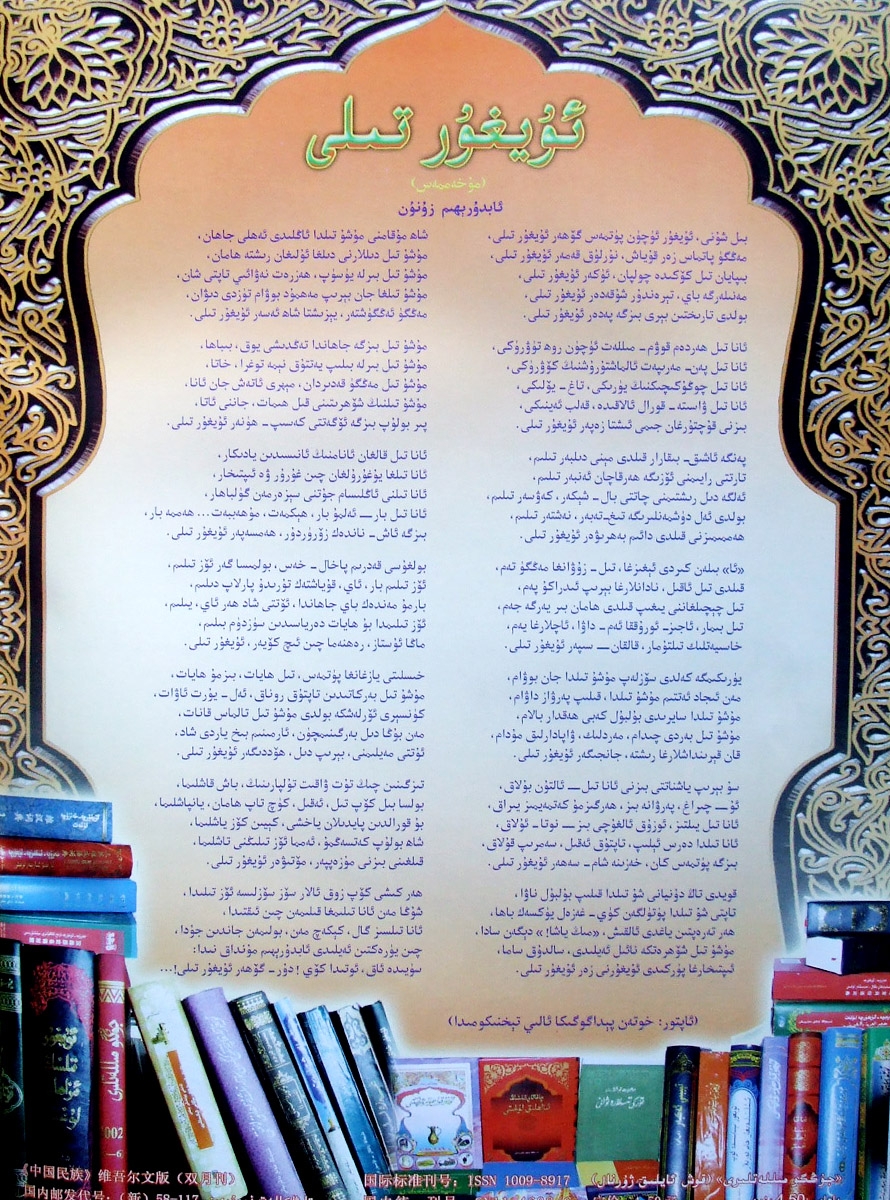 ئۇيغۇر تىلى
(مۇخەممەس)
ئابدۇرېھىم زۇنۇن
بىل شۇنى، ئۇيغۇر ئۈچۈن پۈتمەس گۆھەر ئۇيغۇر تىلى،
مەڭگۈ پاتماس زەر قۇياش، نۇرلۇق قەمەر ئۇيغۇر تىلى،
بىپايان تىل كۆكىدە چولپان، ئۈكەر ئۇيغۇر تىلى،
مەنىلەرگە باي، تېرەندۇر شۇقەدەر ئۇيغۇر تىلى،
بولدى تارىختىن بېرى بىزگە پەدەر ئۇيغۇر تىلى.
ئانا تىل ھەردەم قوۋم - مىللەت ئۈچۈن روھ تۈۋرۈكى،
ئانا تىل پەن - مەرىپەت ئالماشتۇرۇشنىڭ كۆۋرۈكى،
ئانا تىل چوڭ كىچىكنىڭ يۈرىكى، تاغ - يۆلىكى،
ئانا تىل ۋاستە - قورال ئالاقىدە، قەلب ئەينىكى،
بىزنى قۇچتۇرغان جىمى ئىشتا زەپەر ئۇيغۇر تىلى.
پەنگە ئاشىق - بىقارار قىلدى مېنى دىلبەر تىلىم،
تارتتى رايىمنى ئۆزىگە ھەرقاچان ئەنبەر تىلىم،
ئەلگە دىل رىشتىمنى چاتتى بال - شېكەر، كەۋسەر تىلىم،
بولدى ئەل دۈشمەنلىرىگە تىغ - تەبەر، نەشتەر تىلىم،
ھەممىمىزنى قىلدى دائىم بەھرىۋەر ئۇيغۇر تىلى.
«ئا» بىلەن كىردى ئېغىزغا، تىل - زۇۋانغا مەڭگۈ تەم،
قىلدى تىل ئاقىل، نادانلارغا بېرىپ ئىدراكۇ پەم،
تىل چېچىلغاننى يىغىپ قىلدى ھامان بىر يەرگە جەم،
تىل بىمار، ئاجىز - ئورۇققا ئەم - داۋا، ئاچلارغا يەم،
خاسىيەتلىك تىلتۇمار، قالقان — سىپەر ئۇيغۇر تىلى.
يۈرىكىمگە كەلدى سۆزلەپ مۇشۇ تىلدا جان بوۋام،
مەن ئىجاد ئەتتىم مۇشۇ تىلدا، قىلىپ پەرۋاز داۋام،
مۇشۇ تىلدا سايرىدى بۇلبۇل كەبى ھەقدار بالام،
مۇشۇ تىل بەردى چىدام، مەردلىك، ۋاپادارلىق مۇدام،
قان قېرىنداشلارغا رىشتە، جانجىگەر ئۇيغۇر تىلى.
سۇ بېرىپ ياشناتتى بىزنى ئانا تىل — ئالتۇن بۇلاق،
ئۇ — چىراغ، پەرۋانە بىز، ھەرگىزمۇ كەتمەيمىز يىراق،
ئانا تىل يىلتىز، ئوزۇق ئالغۇچى بىز — نوتا - ئۇلاق،
ئانا تىلدا دەرس ئېلىپ، تاپتۇق ئەقىل، سەمرىپ قۇلاق،
بىزگە پۈتمەس كان، خەزىنە شام - سەھەر ئۇيغۇر تىلى.
قويدى تاڭ دۇنيانى شۇ تىلدا قىلىپ بۇلبۇل ناۋا،
تاپتى شۇ تىلدا پۈتۈلگەن كۈي - غەزەل يۈكسەك باھا،
ھەر تەرەپتىن ياغدى ئالقىش، «مىڭ ياشا!» دېگەن سادا،
مۇشۇ تىل شۆھرەتكە نائىل ئەيلىدى، سالدۇق ساما،
ئىپتىخارغا پۈركىدى ئۇيغۇرنى زەر ئۇيغۇر تىلى.
شاھ مۇقامنى مۇشۇ تىلدا ئاڭلىدى ئەھلى جاھان،
مۇشۇ تىل دىللارنى دىلغا ئۇلىغان رىشتە ھامان،
مۇشۇ تىل بىرلە يۈسۈپ، ھەزرەت نەۋائىي تاپتى شان،
مۇشۇ تىلغا جان بېرىپ مەھمۇد بوۋام تۈزدى دىۋان،
مەڭگۈ ئەگگۈشتەر، يېزىشتا شاھ ئەسەر ئۇيغۇر تىلى.
مۇشۇ تىل بىزگە جاھاندا تەڭدىشى يوق، بىباھا،
مۇشۇ تىل بىرلە بىلىپ يەتتۇق نېمە توغرا، خاتا،
مۇشۇ تىل مەڭگۈ قەدىردان، مېھرى ئاتەش جان ئانا،
مۇشۇ تىلنىڭ شۆھرىتىنى قىل ھىمات، جاننى ئاتا،
پىر بولۇپ بىزگە ئۆگەتتى كەسىپ - ھۈنەر ئۇيغۇر تىلى.
ئانا تىل قالغان ئانامنىڭ ئانىسىدىن يادىكار،
ئانا تىلغا يۇغۇرۇلغان چىن غۇرۇر ۋە ئىپتىخار،
ئانا تىلنى ئاڭلىسام جۈتنى سېزەرمەن گۈلباھار،
ئانا تىل بار — ئەلمۇ بار، ھېكمەت، مۇھەببەت... ھەممە بار،
بىزگە ئاش - ناندەك زۆرۈردۇر، ھەمسەپەر ئۇيغۇر تىلى.
بولغۇسى قەدرىم پاخال - خەس، بولمىسا گەر ئۆز تىلىم،
ئۆز تىلىم بار، ئاي، قۇياشتەك تۇرىدۇ پارلاپ دىلىم،
بارمۇ مەندەك باي جاھاندا، ئۆتتى شاد ھەر ئاي، يىلىم،
ئۆز تىلىمدا بۇ ھايات دەرياسىدىن سۈزدۈم بىلىم،
ماڭا ئۇستاز، رەھنەما چىن ئىچ كۆيەر، ئۇيغۇر تىلى.
خىسلىتى يازغانغا پۈتمەس، تىل ھايات، بىزمۇ ھايات،
مۇشۇ تىل بەرىكاتىدىن تاپتۇق روناق، ئەل - يۇرت ئاۋات،
كۈنسېرى ئۆرلەشكە بولدى مۇشۇ تىل تالماس قانات،
مەن بۇڭا دىل بەرگىنىمچۈن، ئارمىنىم يوق ياردى شاد،
ئۆتتى مەيلىمنى، بېرىپ دىل، ھۆددىگەر ئۇيغۇر تىلى.
تىزگىنىن چىڭ تۇت ۋاقىت تۇلپارىنىڭ، باش قاشلىما،
بولسا بىل كۆپ تىل، ئەقىل، كۈچ تاپ ھامان، يانپاشلىما،
بۇ قورالدىن پايدىلان ياخشى، كېيىن كۆز ياشلىما،
شاھ بولۇپ كەتسەڭمۇ، ئەمما ئۆز تىلىڭنى تاشلىما،
قىلغىنى بىزنى مۇزەپپەر، مۆتىۋەر ئۇيغۇر تىلى.
ھەر كىشى كۆپ زوق ئالار سۆز سۆزلىسە ئۆز تىلىدا،
شۇڭا مەن ئانا تىلىمغا قىلىمەن چىن ئىقتىدا،
ئانا تىلسىز گال، كېكەچ مەن، بولىمەن جاندىن جۇدا،
چىن يۈرەكتىن ئەيلىدى ئابدۇرېھىم مۇنداق نىدا:
سۈيىدە ئاق، ئوتىدا كۆي! دۇر - گۆھەر ئۇيغۇر تىلى!...
(ئاپتور: خوتەن پېداگوگىكا ئالىي تېخنىكومىدا)
2002
—6
《中国民族》维吾尔文版（双月刊）
国际标准刊号：ISSN 1009-8917
«جۇڭگو مىللەتلىرى» (قوش ئايلىق ژۇرنال)
国内邮发代号：（新）58-117